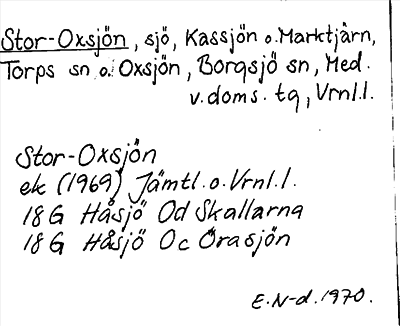 Stor-Oxsjön, sjö, Kassjön o. Marktjärn,
Torps sn o. Oxsjön, Borgsjö sn, Med.
v. doms. tg, Vrnl.l.
Stor-Oxsjön
ek (1969) Jämtl. o. Vrnl. l.
18 G Håsjö Od Skallarna
18 G Håsjö Oc Örasjön
E. N-d. 1970.